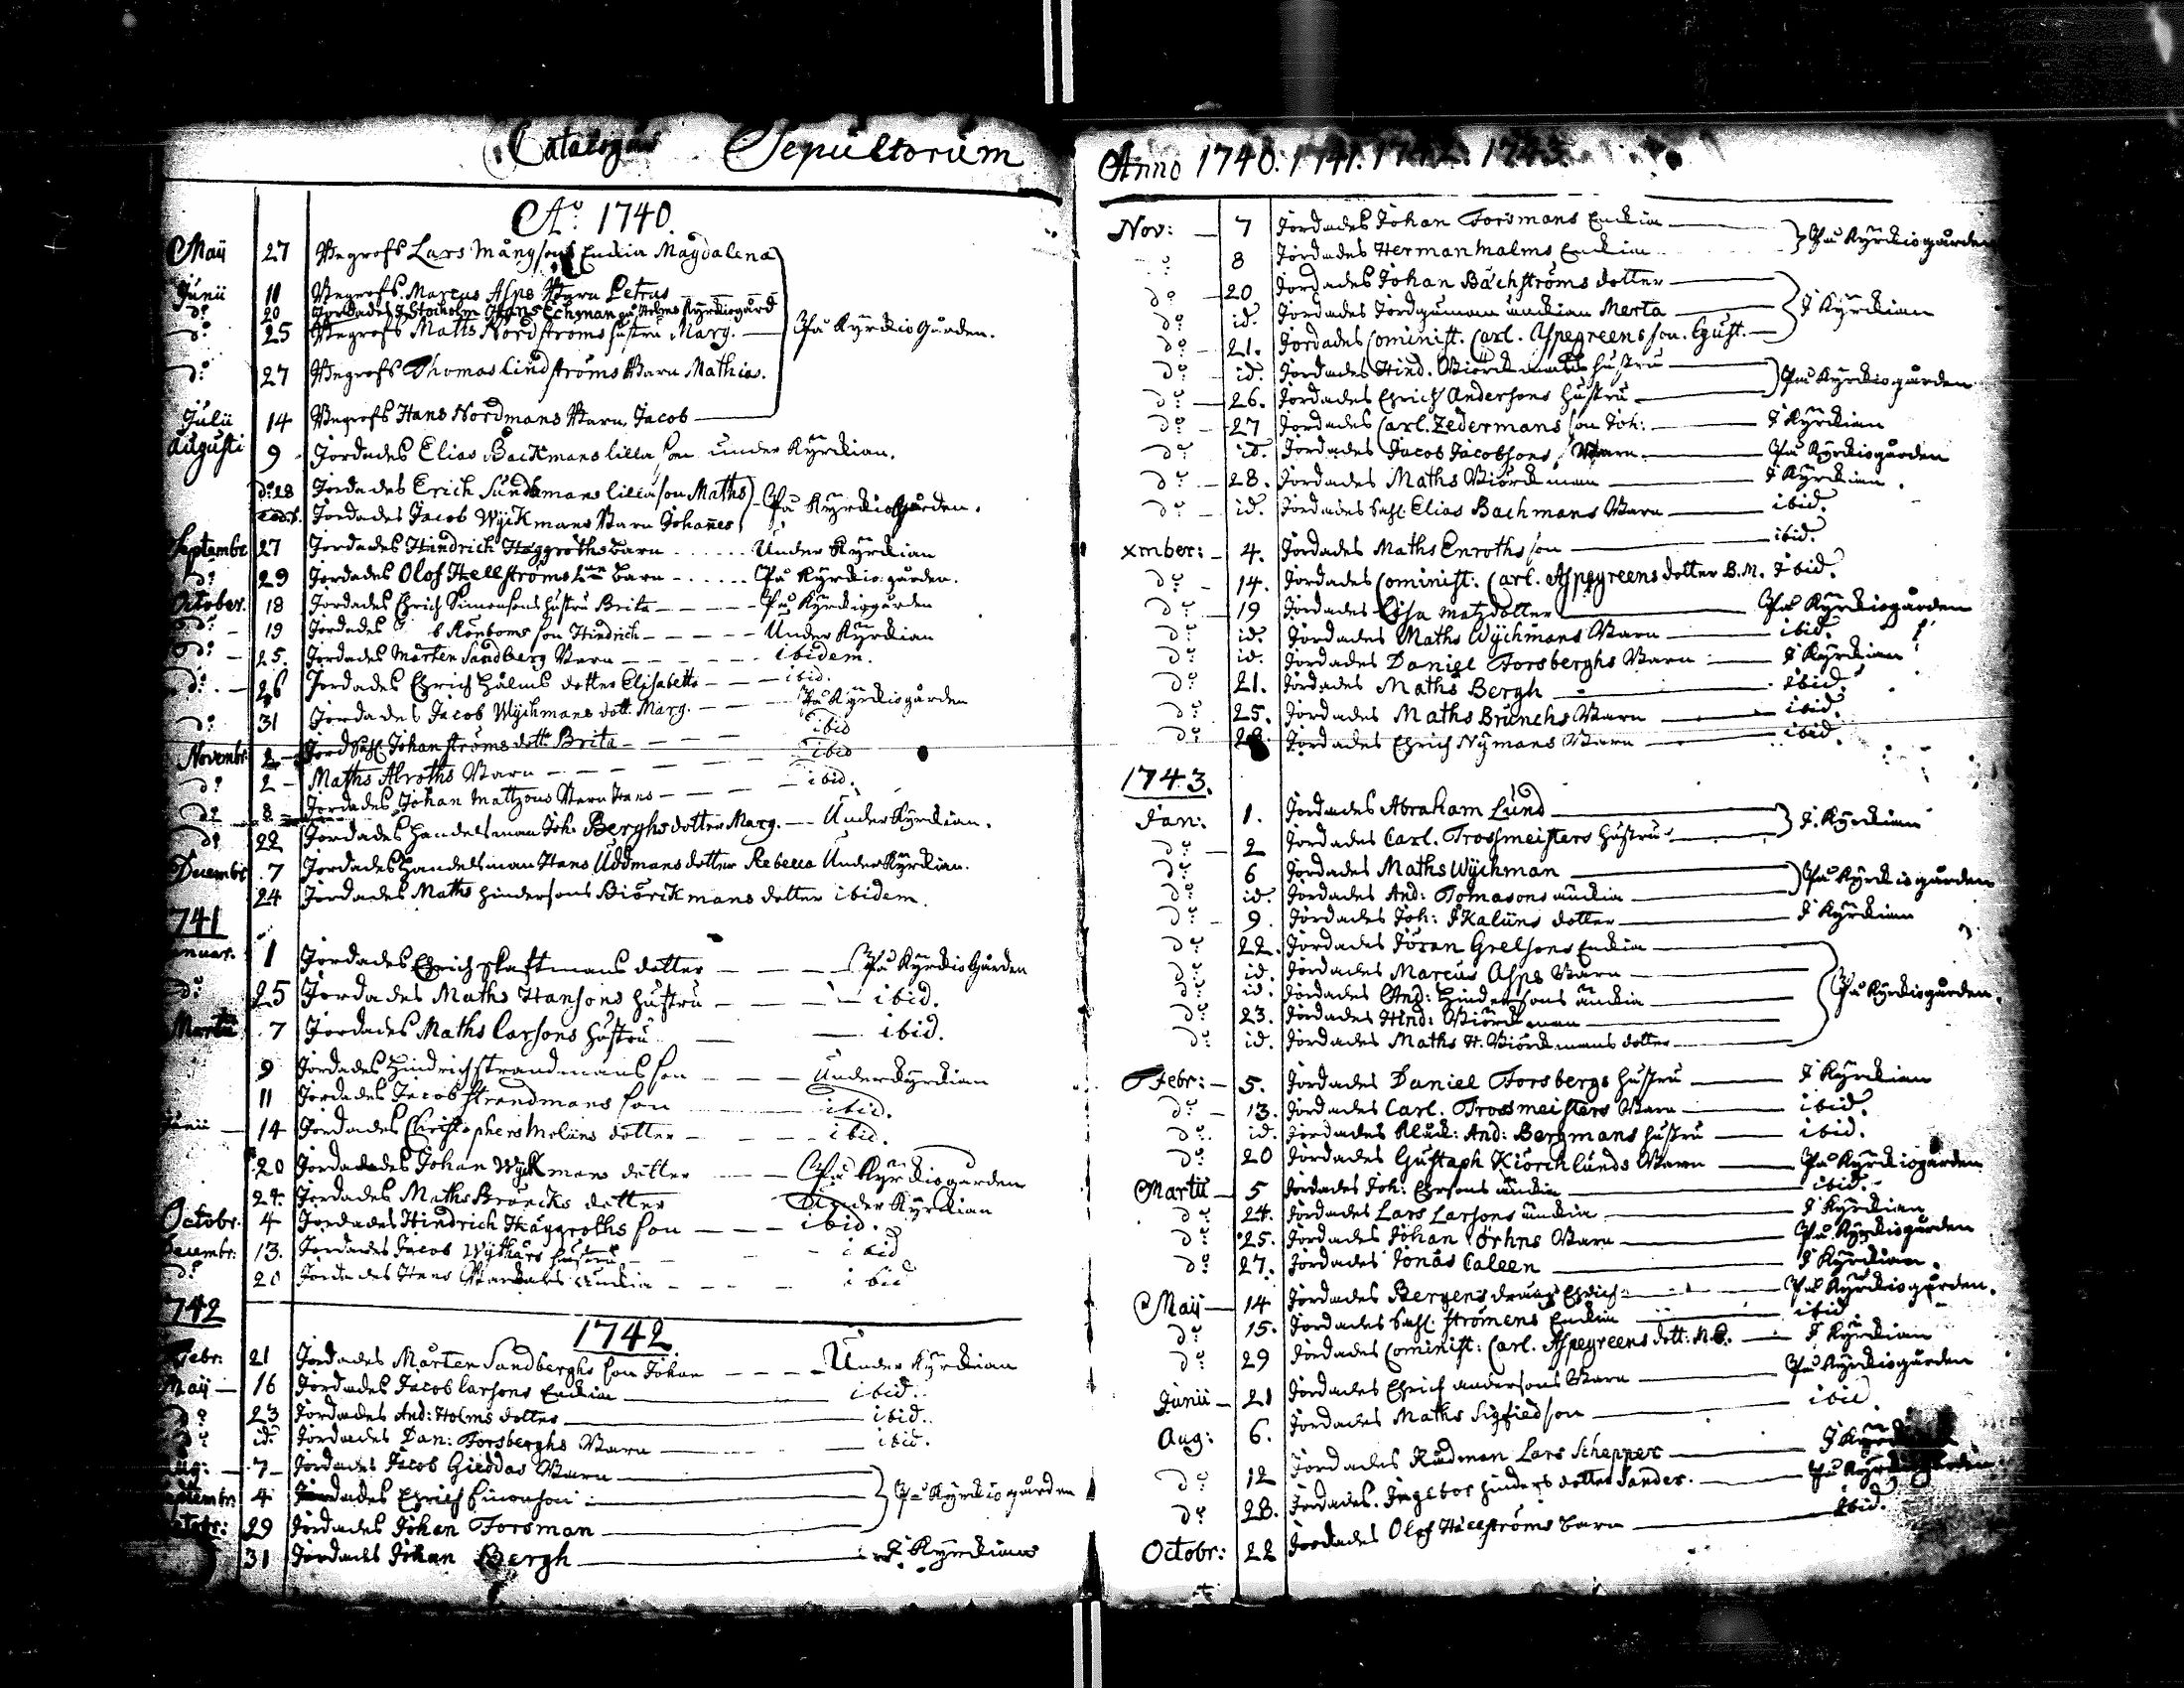 Catalogus Sepultorum
Ao. 1740.
Maij 27 Begrofs Lars Mångsons Enckia Magdalena
Junii 11 Begrofs Marcus Asps Barn Petrus
do. 20 Jordades i Stockholm Hans Echman på Holms Kyrkiogård
do. 25 Begrofs Matts Nordströms hustru Marg. På Kyrkio Gården.
do. 27 Begrofs Thomas Lindströms Barn Mathias.
Julii 14 Begrofs Hans Nordmans Barn, Jacob
Augusti 9 Jordades Elias Backmans lilla son under Kyrkian.
do. 28 Jordades Erich Sundmans lilla son Maths På Kyrkio Gården.
eod. Jordades Jacob Wijkmans Barn Johannes
Septembr. 27 Jordades Hindrich Häggroths barn Under Kyrkian
do. 29 Jordades Olof Hellströms barn På Kyrkiogården.
October. 18 Jordades Erich Simonsons hustru Brita På Kyrkiogården
do. 19 Jordades Rönboms son Hindrich Under Kyrkian
do. 25. Jordades Mårten Sandberg Barn ibidem.
do. 26 Jordades Erich Holms dotter Elisabetta ibid.
do. 31 Jordades Jacob Wijchmans dott. Marg. På Kyrkiogården
Novembr. 2 Jord. Sahl. Johan ströms dott. Brita ibid
2 Maths Alroths Barn ibid
do. 8 Jordades Johan Mattzons Barn Hans ibid.
do. 22 Jordades handelsman Joh. Berghs dotter Marg. Under Kyrkian.
Decembr. 7 Jordades Handelsman Hans Uddmans dotter Rebecca Under Kyrkian.
24 Jordades Maths Hindersons Biörkmans dotter ibidem.
741
Januar. 1 Jordades Erich skaftmans dotter På Kyrkio Gården
do. 25 Jordades Maths Hansons hustru ibid.
Martii 7 Jordades Maths Larsons hustru ibid.
9 Jordades Hindrich strandmans son Under Kyrkian
11 Jordades Jacob strandmans son ibid.
Junii 14 Jordades Christophers Molins dotter ibid.
20 Jordades Johan Wijkmans dotter På Kyrkiogården
24. Jordades Maths Brüncks dotter Under Kyrkian
Octobr. 4 Jordades Hindrich Häggroths son ibid.
Decembr: 13. Jordades Jacob hustru ibid
do. 20 Jordades Hans änckia ibid
742
1742.
Febr: 21 Jordades Mårten Sandberghs son Johan Under Kyrkian
Maij 16 Jordades Jacob Larsons Enckia ibid.
do. 23 Jordades And: Holms dotter ibid.
do. id. Jordades Dan: Forsberghs Barn ibid.
Aug: 7 Jordades Jacob Gäddas Barn
Septembr: 4 Jordades Ehrich Simonson På Kyrkiogården
Octobr: 29 Jordades Johan Forsman
31 Jordades Johan Bergh I Kyrkian
Anno 1740. 1741. 1742. 1743.
Nov: 7 Jordades Johan Forsmans Enckia På Kyrkiogården
8 Jordades Herman Malms Enckia
do. 20 Jordades Johan Bächströms dotter
do. id. Jordades änckian Merta I Kyrkian
do. 21. Jordades Cominist. Carl. Aspegreens son. Gust.
do. id. Jordades Hind. Biörckmans hustru På Kyrkiogården
do. 26. Jordades Ehrich Andersons hustru
do. 27 Jordades Carl. Zedermans son Joh: I Kyrkian
do. id. Jordades Jacob Jacobsons Barn På Kyrkiogården
do. 28. Jordades Maths Biörckman I Kyrkian.
do. id. Jordades Sahl. Elias Bachmans Barn ibid.
xmber: 4. Jordades Maths Enroths son ibid.
do. 14. Jordades Cominist: Carl. Aspegreens dotter B.M. Ibid.
do. 19 Jordades Lisa Matzdotter På Kyrkiogården
do. id. Jordades Maths Wijchmans Barn ibid.
do. id. Jordades Daniel Forsberghs Barn I Kyrkian
do. 21. Jordades Maths Bergh ibid.
do. 25. Jordades Maths Brünchs Barn ibid.
do. 28. Jordades Ehrich Nymans Barn ibid.
1743.
Jan: 1. Jordades Abraham Lund I. Kyrkian
do. 2 Jordades Carl. Trossmeisters hustru
do. 6 Jordades Maths Wijchman På Kyrkiogården
do. id. Jordades And: Tomasons änckia
do. 9. Jordades Joh: Skalüns dotter I Kyrkian
do. 22. Jordades Jöran Grelsons Enckia
do. id. Jordades Marcus Asps Barn
do. id. Jordades And: Hindersons änckia På Kyrkiogården.
do. 23. Jordades Hind: Biörckman
do. id. Jordades Maths H. Biörckmans dotter
Febr: 5. Jordades Daniel Forsbergs hustru I Kyrkian
do. 13. Jordades Carl. Trosmeisters Barn ibid.
do. id. Jordades Kläck: And: Bergmans hustru ibid.
do. 20 Jordades Gustaph Kiörchlunds Barn På Kyrkiogården
Martii 5 Jordades Joh: Ehrsons änckia ibid.
do. 24. Jordades Lars Larsons änckia I Kyrkian
do. 25. Jordades Johan Örhns Barn På Kyrkiogården
do. 27. Jordades Jonas Caleen I Kyrkian.
Maij 14 Jordades Bergens dräng Ehrich: På Kyrkiogården.
do. 15. Jordades Sahl. strömens Enckia ibid
do. 29 Jordades Cominist: Carl. Aspegreens dott: I Kyrkian
Junii 21 Jordades Ehrich Andersons Barn På Kyrkiogården
Aug: 6. Jordades Maths Sigfiedson ibid.
do. 12 Jordades Rådman Lars Schepper I Kyrkian
do. 28. Jordades. Ingebor Hinders dotter Sander. På Kyrkiogården
Octobr: 22 Jordades Olof Hällströms barn ibid.